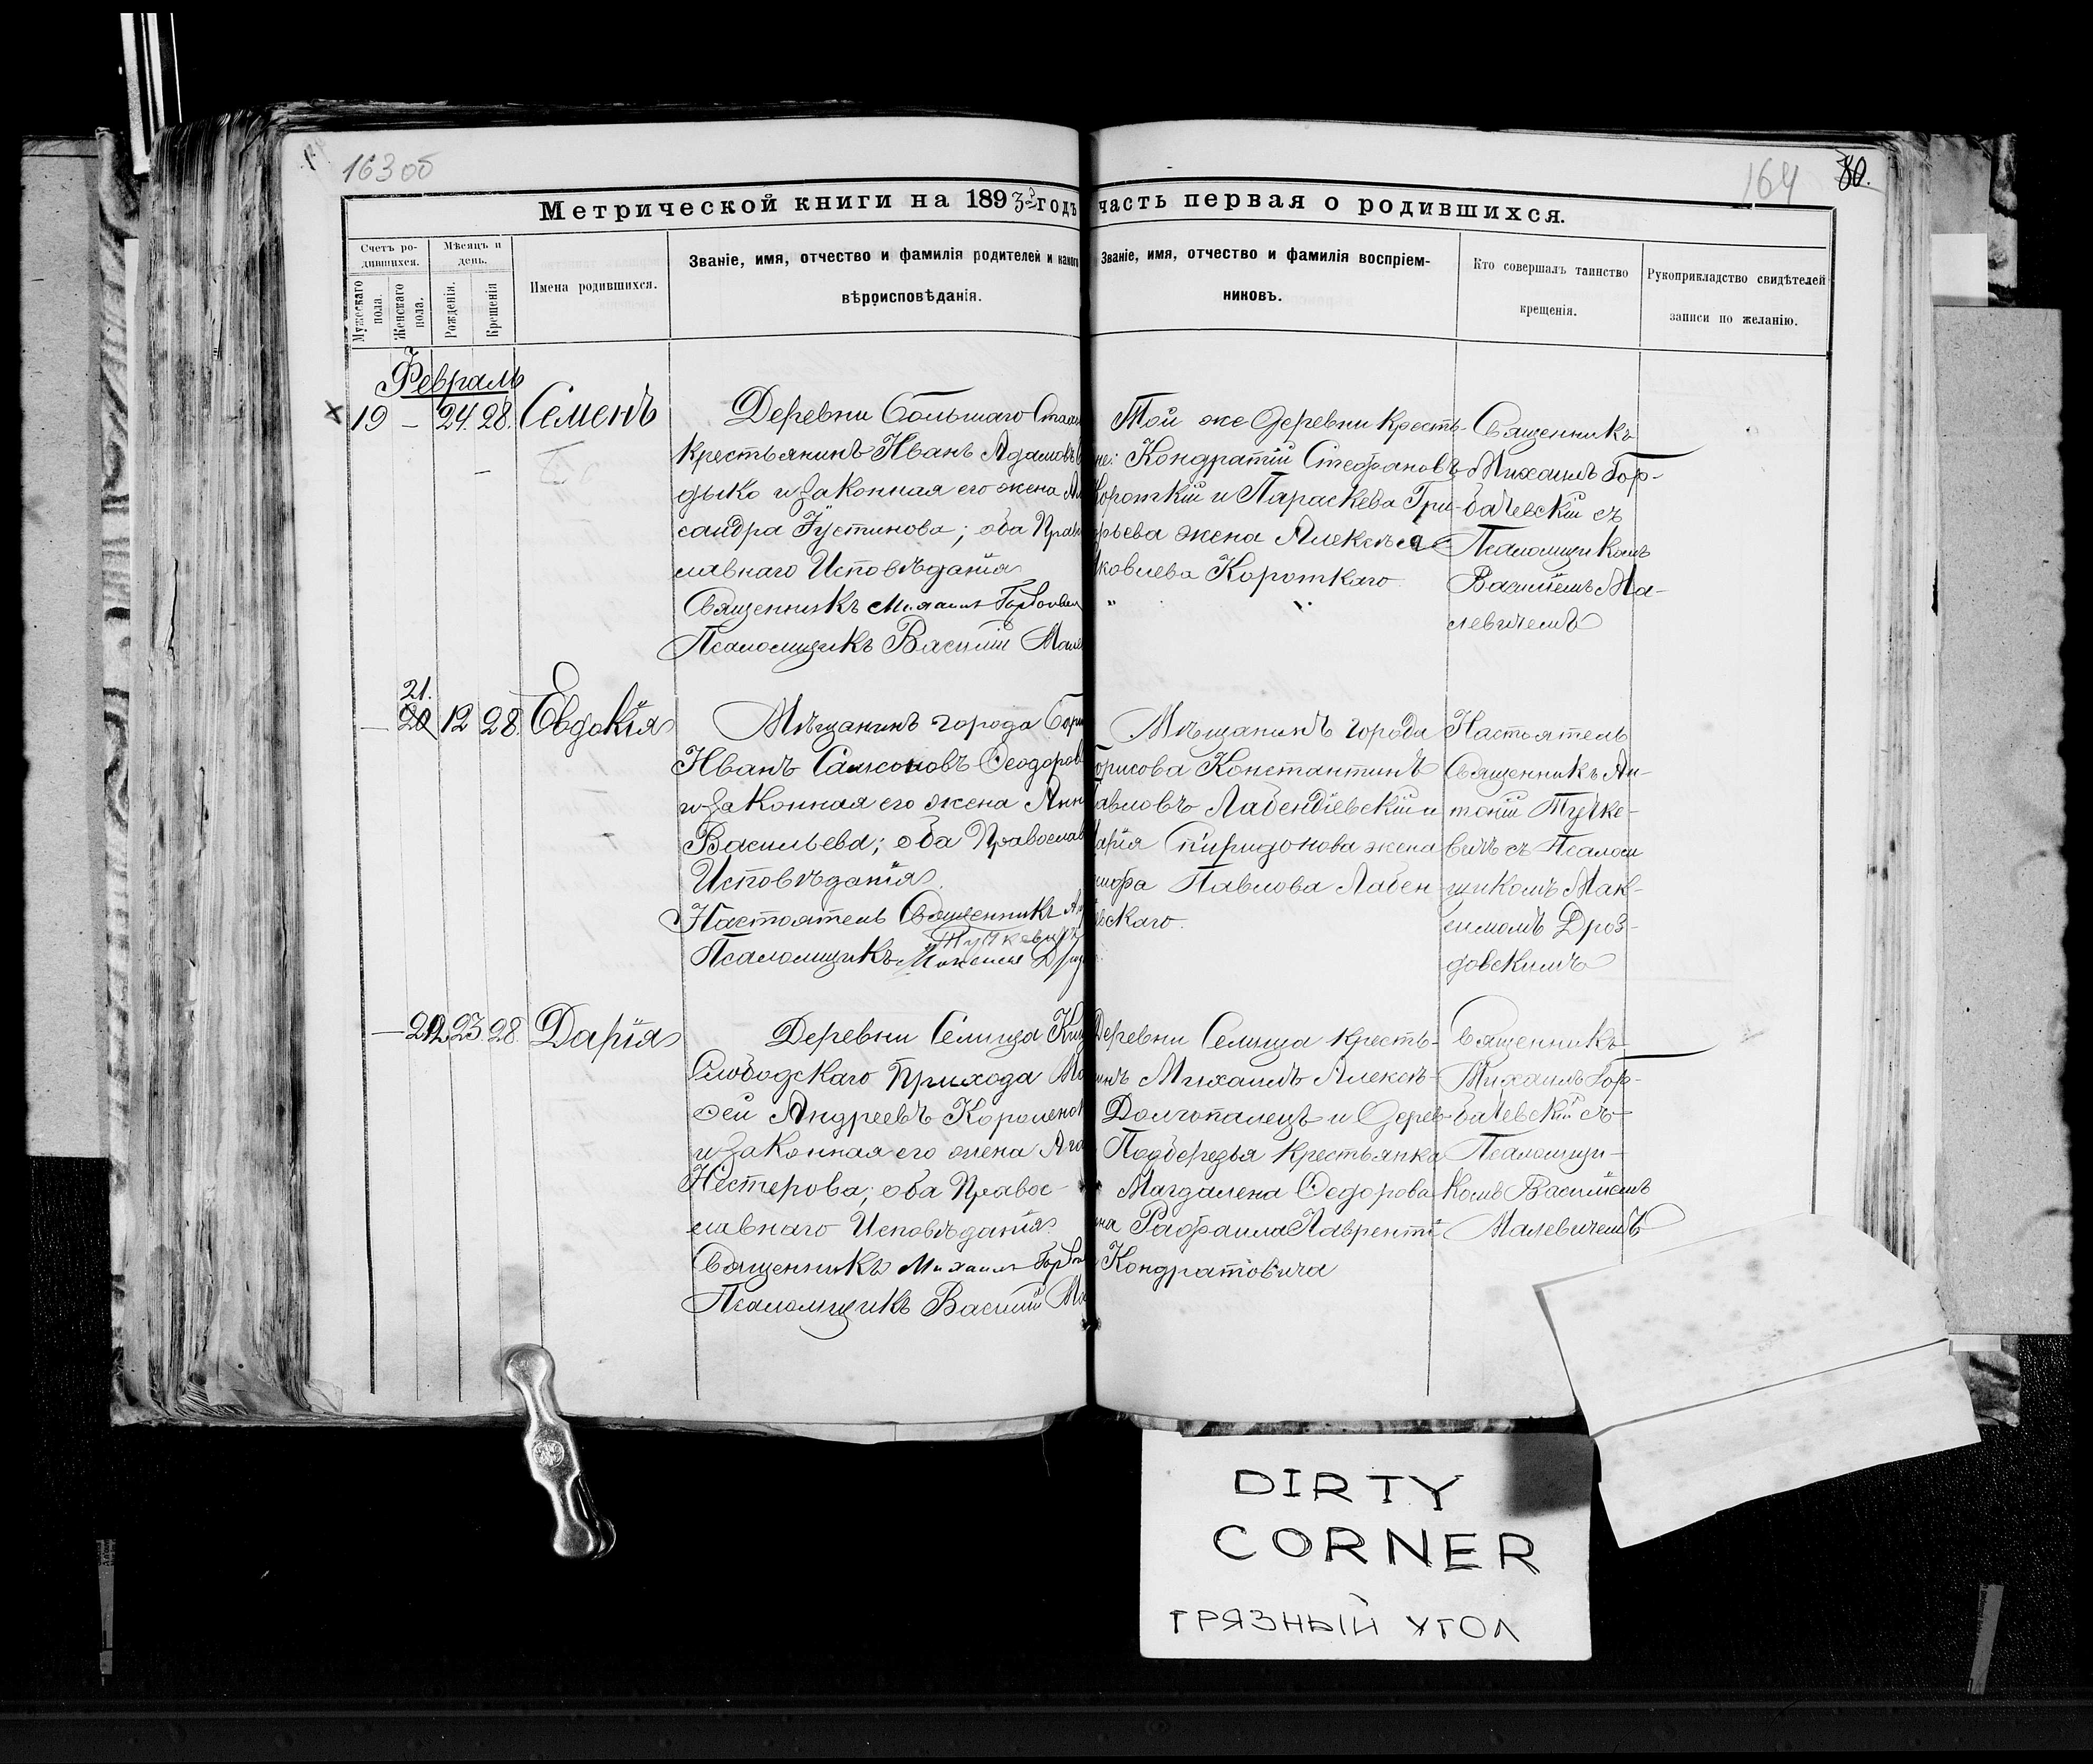 163 об
164
80.
Метрической книги на 1893й годъ часть первая о родившихся.
Счетъ родившихся.
Мужескаго пола.
Женскаго пола.
Мѣсяцъ и день.
Рожденія.
Крещенія
Имена родившихся.
Званіе, имя, отчество и фамилія родителей и какого
вѣроисповѣданія.
Званіе, имя, отчество и фамилія воспріем-
никовъ.
Кто совершалъ таинство
крещенія.
Рукоприкладство свидѣтелей
записи по желанію.
Февраль
19 — 24. 28. Семенъ
Деревни Большаго
крестьянинъ Иванъ Адамовъ
дыко и законная его жена
сандра Іустинова; оба Право
славнаго Исповѣданія
Священникъ Михаилъ
Псаломщикъ Василій
Той же деревни кресть-
не: Кондратій Стефановъ
Короткій и Параскева Гри-
орьева жена Алексѣя
Яковлева Короткаго
Священникъ
Михаилъ Гор-
бачевскій съ
Псаломщикомъ
Василіемъ Ма-
левичемъ
21.
— 20 12 28. Евдокія
Мѣщанинъ города Бори
Иванъ Самсоновъ Ѳеодоров
и законная его жена Анн
Васильева; оба Православ
Исповѣданія
Настоятель Священникъ
Тучкевичъ
Псаломщикъ Максимъ
Мѣщанинъ города
Борисова Константинъ
Павловъ Лабендіевскій и
Марія Спиридонова жена
Павлова Лабен
евскаго.
Настоятель
Священникъ Ан-
тоній Тучке-
вичъ съ Псалом
щикомъ Мак-
симомъ Дроз-
довскимъ
— 22 23 28. Дарія
Деревни Селища
Слободскаго Прихода
сей Андреевъ Короленок
и законная его жена Ага
Нестерова; оба Правос-
лавнаго Исповѣданія
Священникъ Михаилъ
Псаломщикъ Василій
Деревни Селища кресть-
инъ Михаилъ Алексѣ-
Долгопалецъ и Дерев-
Подберезья крестьянка
Магдалена Ѳедорова
на Рафаила Лавренті
Кондратовича
Священникъ
Михаилъ Гор-
бачевскій съ
Псаломщи-
комъ Василіемъ
Малевичемъ
DIRTY
CORNER
ГРЯЗНЫЙ УГОЛ